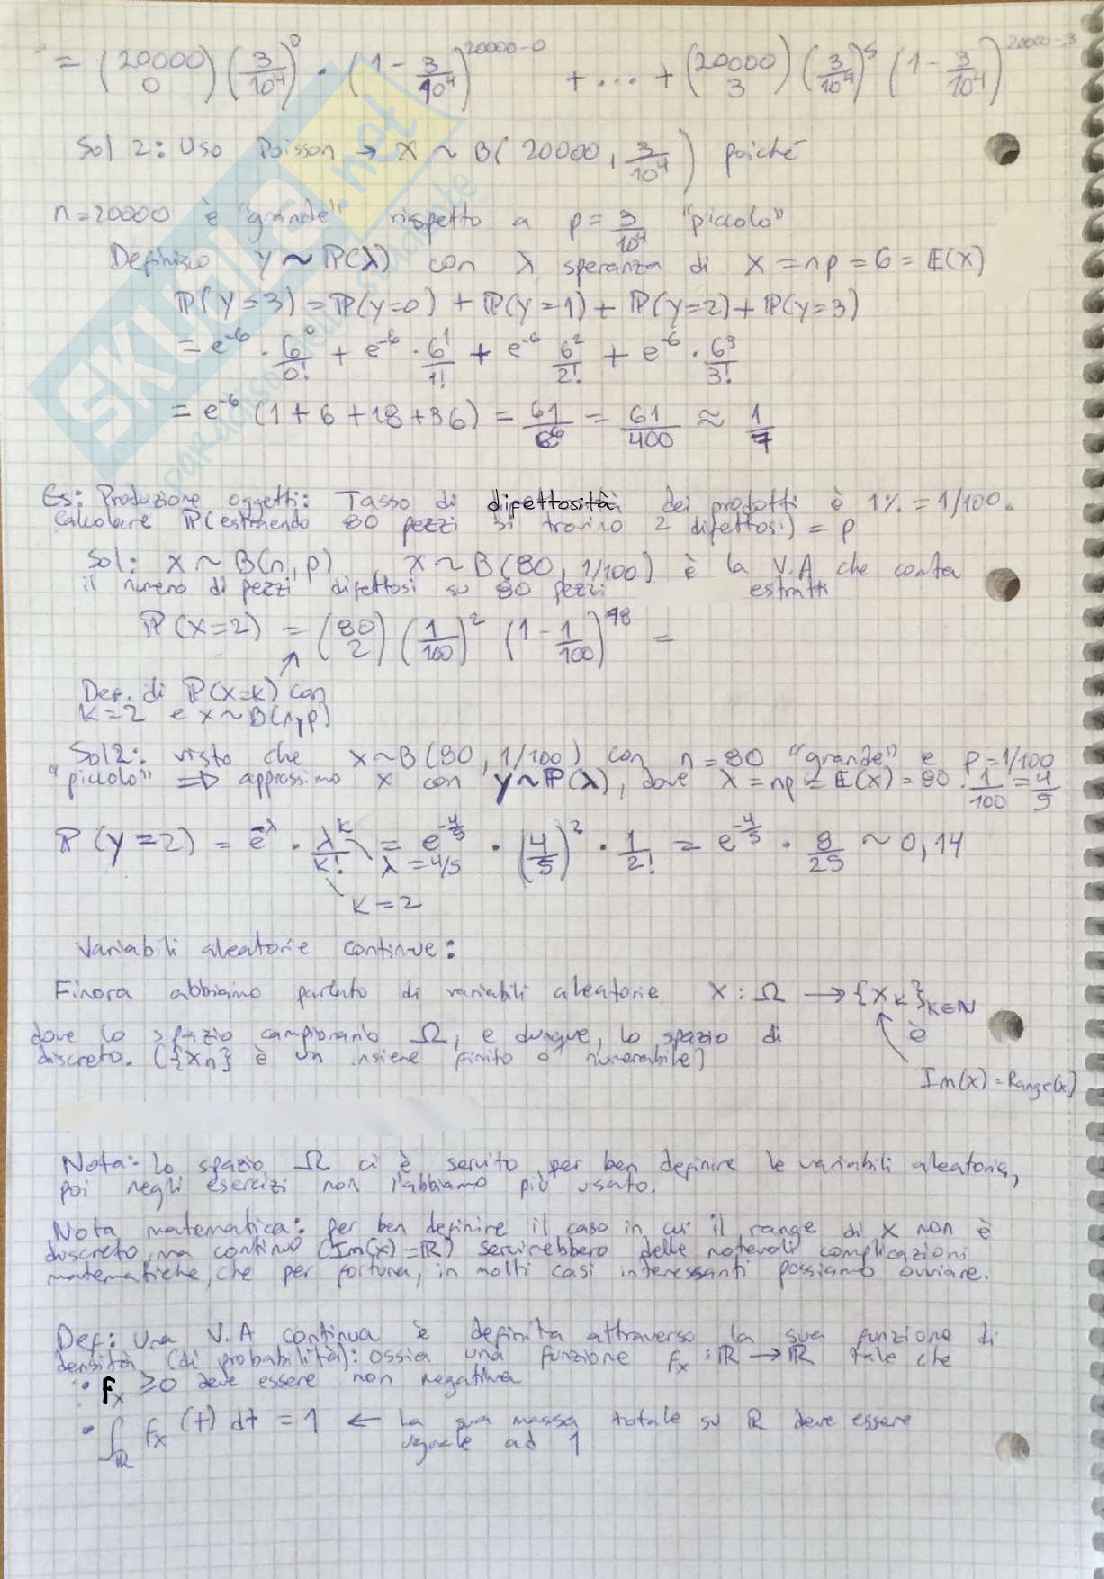 = (20000 0) (3/10⁴)⁰ · (1 - 3/10⁴)²⁰⁰⁰⁰⁻⁰ + ... + (20000 3) (3/10⁴)⁵ (1 - 3/10⁴)²⁰⁰⁰⁰⁻³
Sol 2: Uso Poisson → X ~ B(20000, 3/10⁴) poiché
n=20000 è "grande" rispetto a p = 3/10⁴ "piccolo"
Definisco Y ~ P(λ) con λ speranza di X = np = 6 = E(X)
P(Y=3) = P(Y=0) + P(Y=1) + P(Y=2) + P(Y=3)
= e⁻⁶ · 6⁰/0! + e⁻⁶ · 6¹/1! + e⁻⁶ 6²/2! + e⁻⁶ · 6³/3!
= e⁻⁶ (1+6+18+36) = 61/e⁶ = 61/400 ≈ 1/7
Es: Produzione oggetti: Tasso di difettosità dei prodotti è 1% = 1/100.
Calcolare P(estraendo 80 pezzi si trovino 2 difettosi) = p
Sol: X ~ B(n,p), X ~ B(80, 1/100) è la V.A che conta
il numero di pezzi difettosi su 80 pezzi estratti
P(X=2) = (80 2) (1/100)² (1 - 1/100)⁷⁸ =
Def. di P(X=k) con
k=2 e X~B(n,p)
Sol2: visto che X~B(80, 1/100) con n=80 "grande" e p=1/100
"piccolo" ⇒ approssimo X con Y~P(λ), dove λ = np = E(X) = 80 · 1/100 = 4/5
P(Y=2) = e^-λ · λ^k/k! = e^-4/5 · (4/5)² · 1/2! = e^-4/5 · 8/25 ~ 0,14
λ=4/5
k=2
Variabili aleatorie continue:
Finora abbiamo parlato di variabili aleatorie X : Ω → {X_k}_k∈N
dove lo spazio campionario Ω, e dunque, lo spazio di è
discreto. ({Xn} è un insieme finito o numerabile)
Im(x) = Range(x)
Nota: Lo spazio Ω ci è servito per ben definire le variabili aleatorie,
poi negli esercizi non l'abbiamo più usato.
Nota matematica: per ben definire il caso in cui il range di X non è
discreto, ma continuo (Im(x) = R) servirebbero delle notevoli complicazioni
matematiche, che per fortuna, in molti casi interessanti possiamo ovviare.
Def: Una V.A continua è definita attraverso la sua funzione di
densità (di probabilità): ossia una funzione fx : R → R tale che
• fx ≥ 0 deve essere non negativa
• ∫_R fx (t) dt = 1 ← La sua massa totale su R deve essere
uguale ad 1